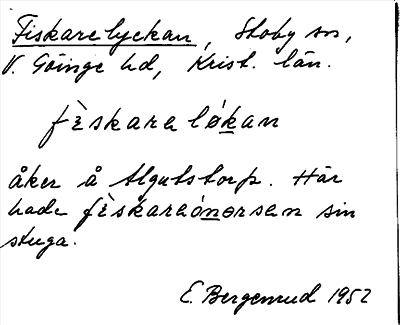 Fiskarelyckan, Stoby sn,
V. Göinge hd, Krist. län.
fìskara løkan
åker å Algutstorp. Här
hade fìskaraónərsen sin
stuga.
E. Bergenrud 1952